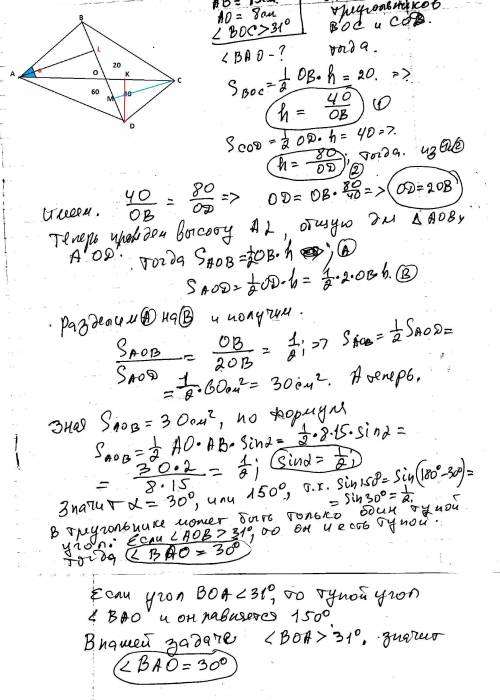 B
L
20
A
α
O
K
C
60
M
40
D
AB = 15см
AO = 8см
∠BOC>31°
∠BAO-?
треугольников
BOC и COD.
тогда.
S_BOC = 1/2 OB·h = 20. =>
h = 40/OB ①
S_COD = 1/2 OD·h = 40 =>.
h = 80/OD ②; тогда из ① ②
Имеем. 40/OB = 80/OD => OD = OB·80/40 => OD=2OB
Теперь проведем высоту AL, общую для ΔAOB и
AOD. Тогда S_AOB = 1/2 OB·h ; Ⓐ
S_AOD = 1/2 OD·h = 1/2·2·OB·h. Ⓑ
Разделим Ⓐ на Ⓑ и получим.
S_AOB/S_AOD = OB/2OB = 1/2; => S_AOB = 1/2 S_AOD =
= 1/2·60см² = 30см². А теперь.
Зная S_AOB = 30см², по формуле
S_AOB = 1/2 AO·AB·sinα = 1/2·8·15·sinα =
= 30·2/8·15 = 1/2; sinα = 1/2;
Значит α = 30°, или 150°, т.к. sin150° = sin(180°-30°) =
= sin30° = 1/2.
В треугольнике может быть только один тупой
угол. Если ∠AOB > 31°, то он и есть тупой.
тогда ∠BAO = 30°
Если угол BOA < 31°, то тупой угол
∠BAO и он равняется 150°
В нашей задаче ∠BOA > 31°, значит
∠BAO = 30°